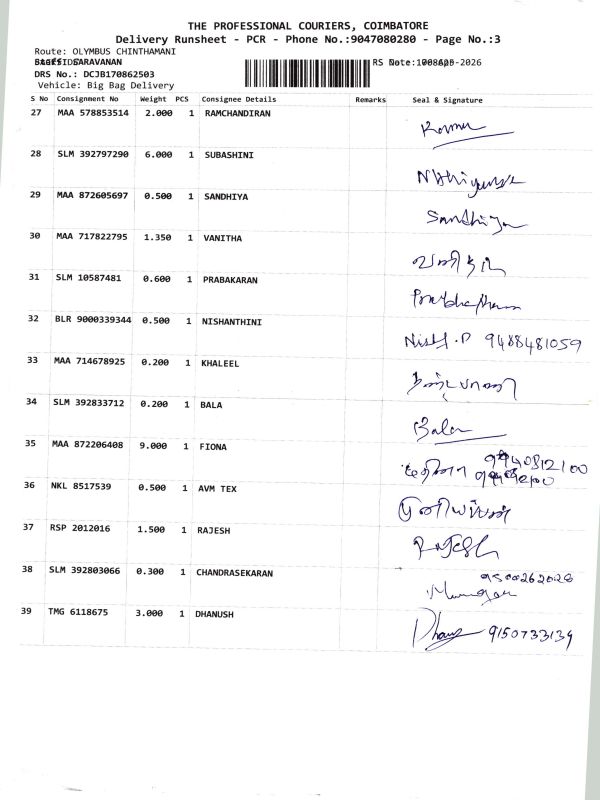 THE PROFESSIONAL COURIERS, COIMBATORE
Delivery Runsheet - PCR - Phone No.:9047080280 - Page No.:3
Route: OLYMBUS CHINTHAMANI
SARAVANAN
DRS No.: DCJB170862503
Vehicle: Big Bag Delivery
S No Consignment No Weight PCS Consignee Details Remarks Seal & Signature
27 MAA 578853514 2.000 1 RAMCHANDIRAN
28 SLM 392797290 6.000 1 SUBASHINI
29 MAA 872605697 0.500 1 SANDHIYA Sandhiya
30 MAA 717822795 1.350 1 VANITHA வனிதா
31 SLM 10587481 0.600 1 PRABAKARAN
32 BLR 9000339344 0.500 1 NISHANTHINI Nish.P 9488481059
33 MAA 714678925 0.200 1 KHALEEL
34 SLM 392833712 0.200 1 BALA Bala
35 MAA 872206408 9.000 1 FIONA
36 NKL 8517539 0.500 1 AVM TEX
37 RSP 2012016 1.500 1 RAJESH RAJESH
38 SLM 392803066 0.300 1 CHANDRASEKARAN
39 TMG 6118675 3.000 1 DHANUSH 9150733139